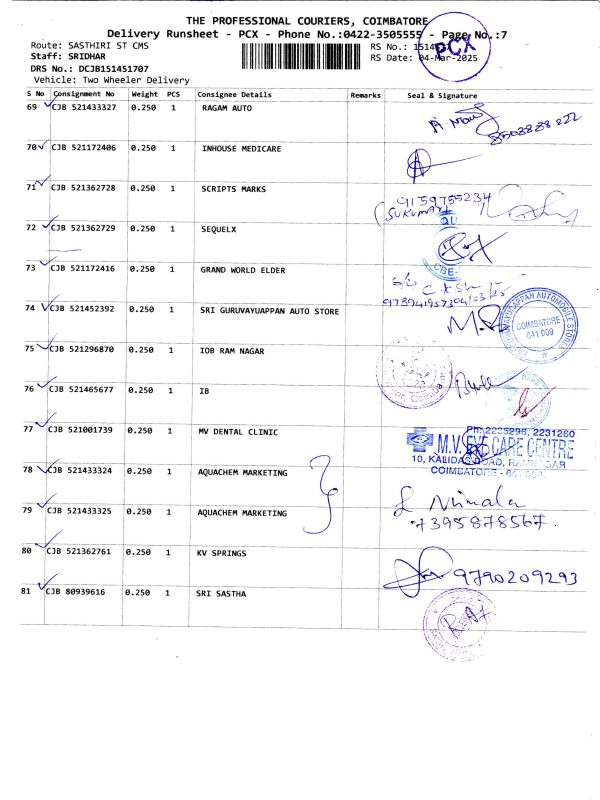 THE PROFESSIONAL COURIERS, COIMBATORE
Delivery Runsheet - PCX - Phone No.:0422-3505555 - Page No.:7
Route: SASTHIRI ST CMS
Staff: SRIDHAR
DRS No.: DCJB151451707
Vehicle: Two Wheeler Delivery
RS Date: 04-Mar-2025
PCX
S No Consignment No Weight PCS Consignee Details Remarks Seal & Signature
69 CJB 521433327 0.250 1 RAGAM AUTO
8508888222
70 CJB 521172406 0.250 1 INHOUSE MEDICARE
71 CJB 521362728 0.250 1 SCRIPTS MARKS
9159755234
SUKUMAR
72 CJB 521362729 0.250 1 SEQUELX
CBE-
73 CJB 521172416 0.250 1 GRAND WORLD ELDER
74 CJB 521452392 0.250 1 SRI GURUVAYUAPPAN AUTO STORE
COIMBATORE
641 009
75 CJB 521296870 0.250 1 IOB RAM NAGAR
76 CJB 521465677 0.250 1 IB
77 CJB 521001739 0.250 1 MV DENTAL CLINIC
Ph: 2235296, 2231260
M.V. EYE CARE CENTRE
10, KALIDAS ROAD, RAMNAGAR
COIMBATORE -
78 CJB 521433324 0.250 1 AQUACHEM MARKETING
79 CJB 521433325 0.250 1 AQUACHEM MARKETING
L Nirmala
7395878567.
80 CJB 521362761 0.250 1 KV SPRINGS
9790209293
81 CJB 80939616 0.250 1 SRI SASTHA